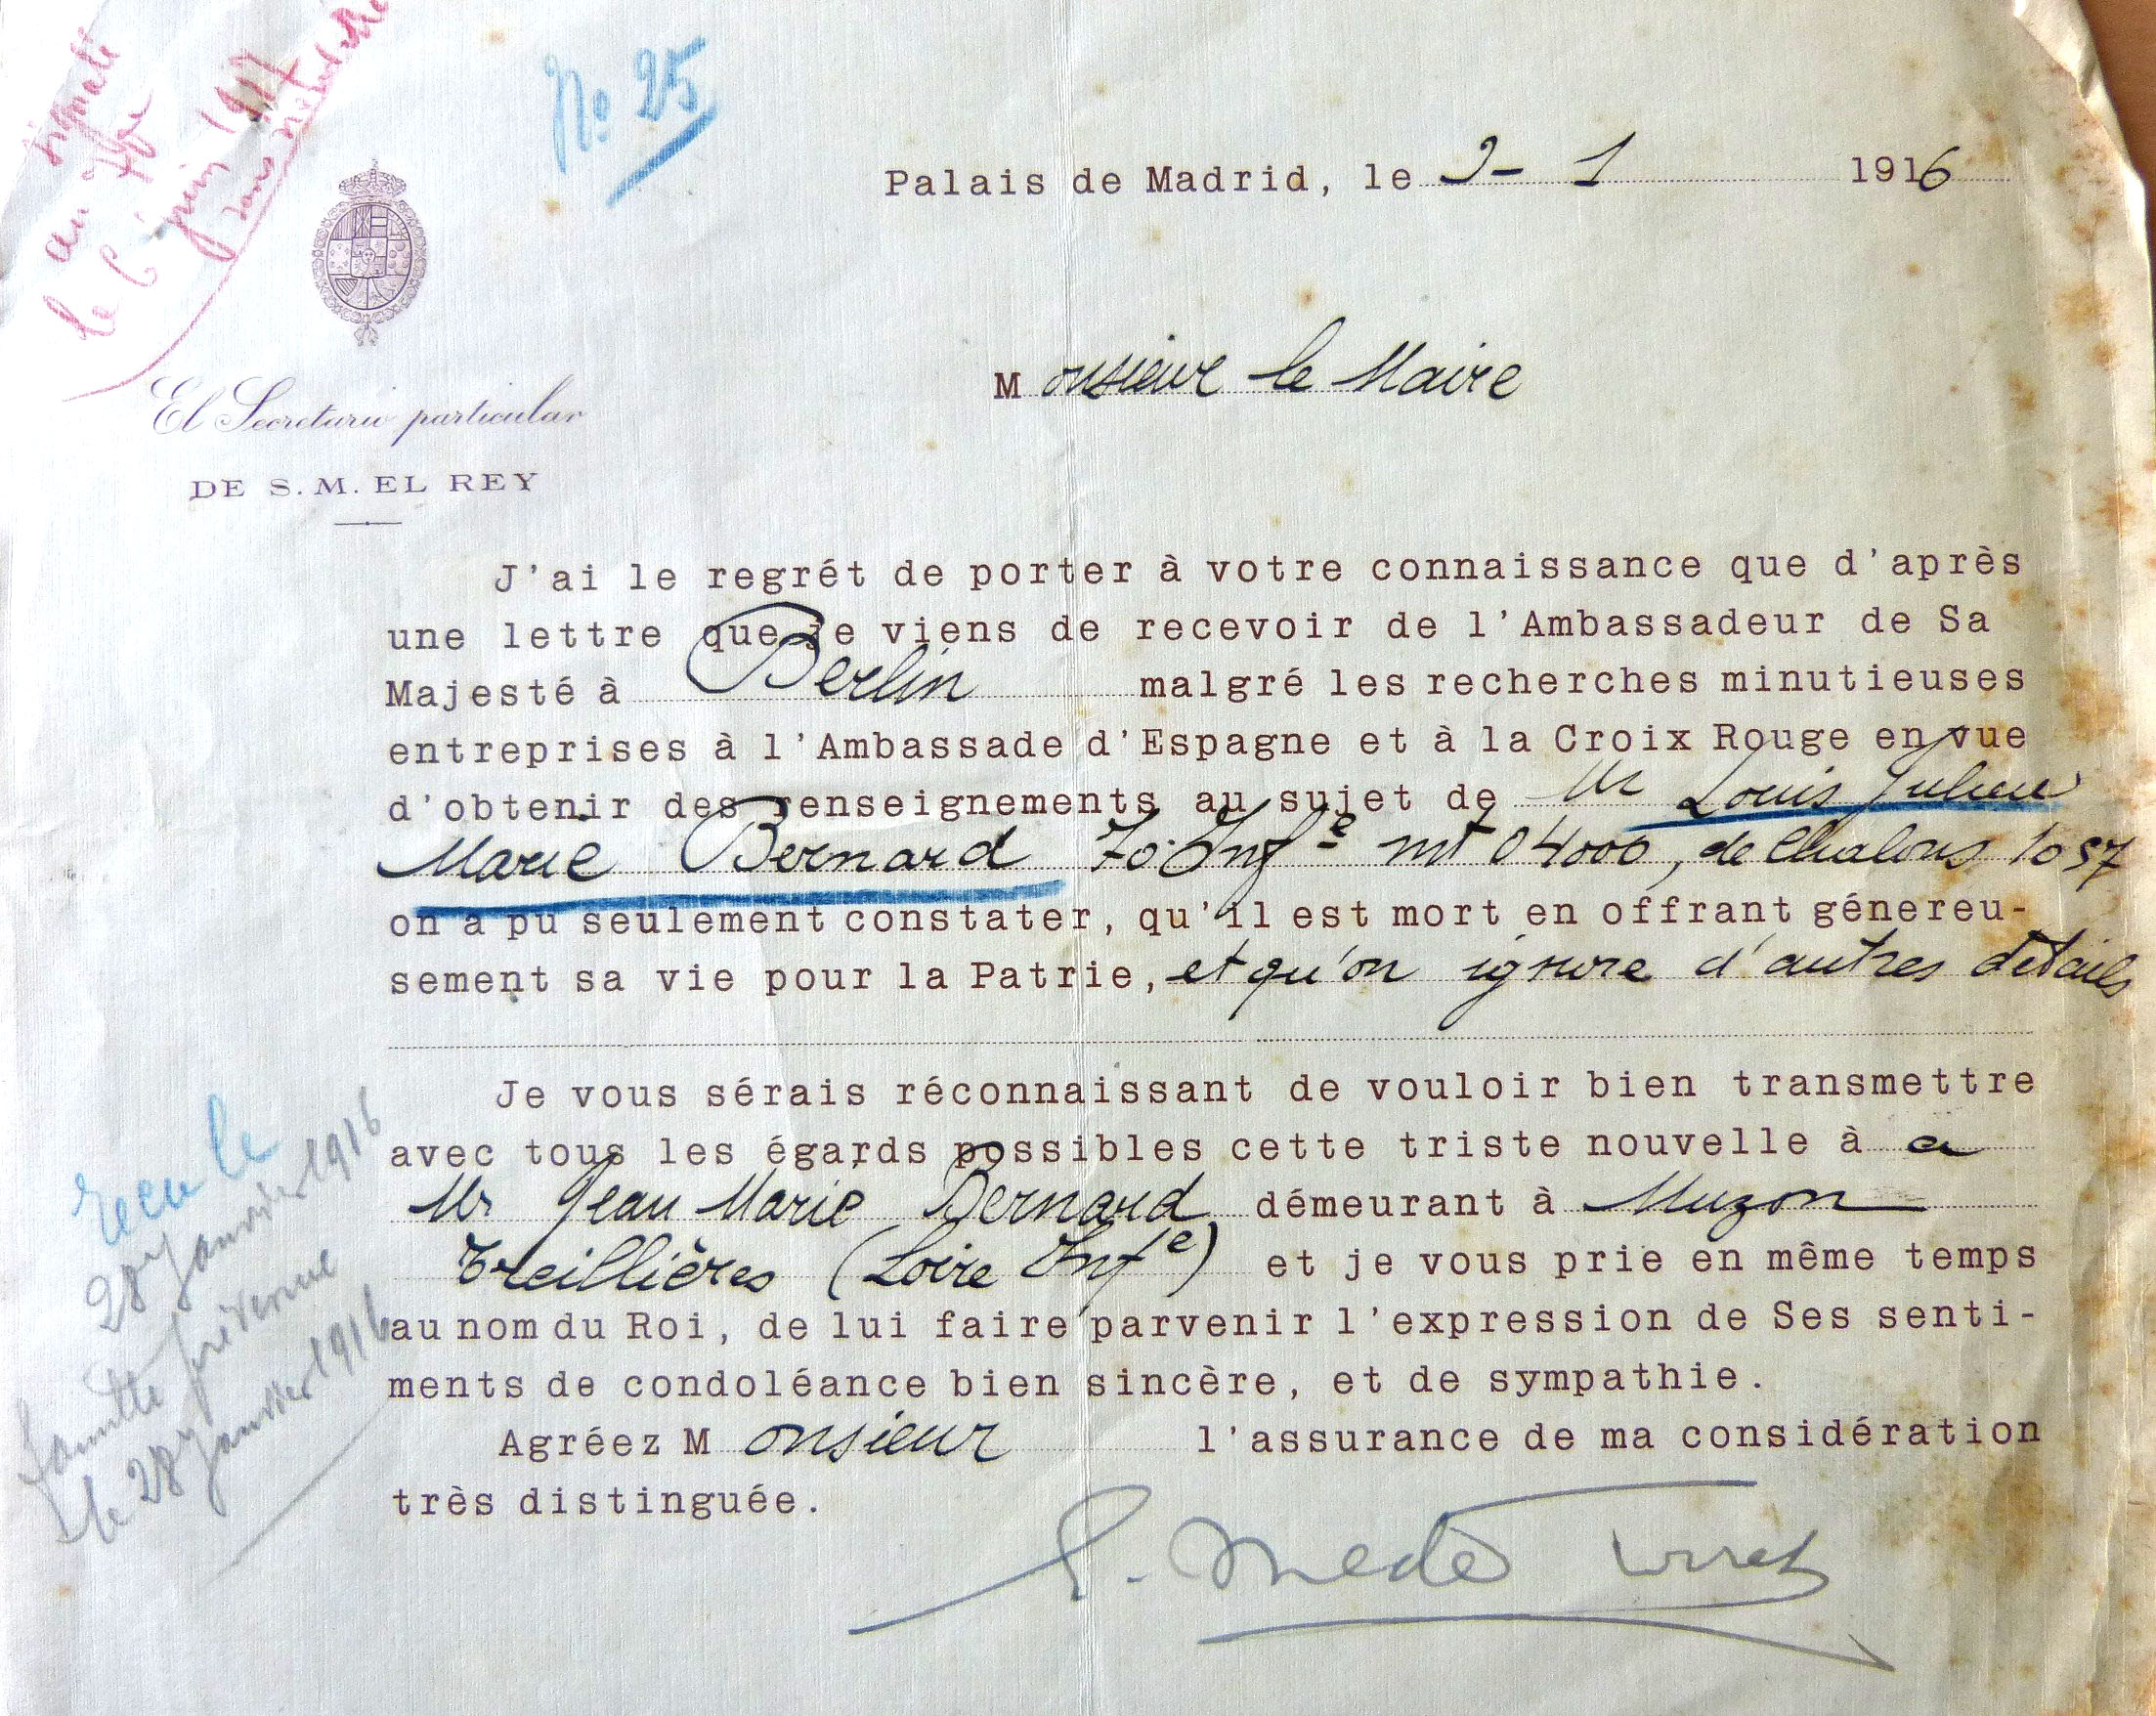 signalé
au
le 6 juin 1917
sans
No 25
Palais de Madrid, le 9- 1 1916
Monsieur le Maire
El Secretario particular
DE S. M. EL REY
J'ai le regrét de porter à votre connaissance que d'après
une lettre que je viens de recevoir de l'Ambassadeur de Sa
Majesté à Berlin malgré les recherches minutieuses
entreprises à l'Ambassade d'Espagne et à la Croix Rouge en vue
d'obtenir des renseignements au sujet de Mr Louis Julien
Marie Bernard 70 Infe mt 04000, de Chalons 1057
on a pu seulement constater, qu'il est mort en offrant génereu-
sement sa vie pour la Patrie, et qu'on ignore d'autres détails
Je vous sérais réconnaissant de vouloir bien transmettre
avec tous les égards possibles cette triste nouvelle à a
Mr Jean Marie Bernard démeurant à Muzon
Treillières (Loire Infe) et je vous prie en même temps
au nom du Roi, de lui faire parvenir l'expression de Ses senti-
ments de condoléance bien sincère, et de sympathie.
Agréez Monsieur l'assurance de ma considération
très distinguée.
recu le
28 Janvier 1916
famille prévenue
le 28 Janvier 1916